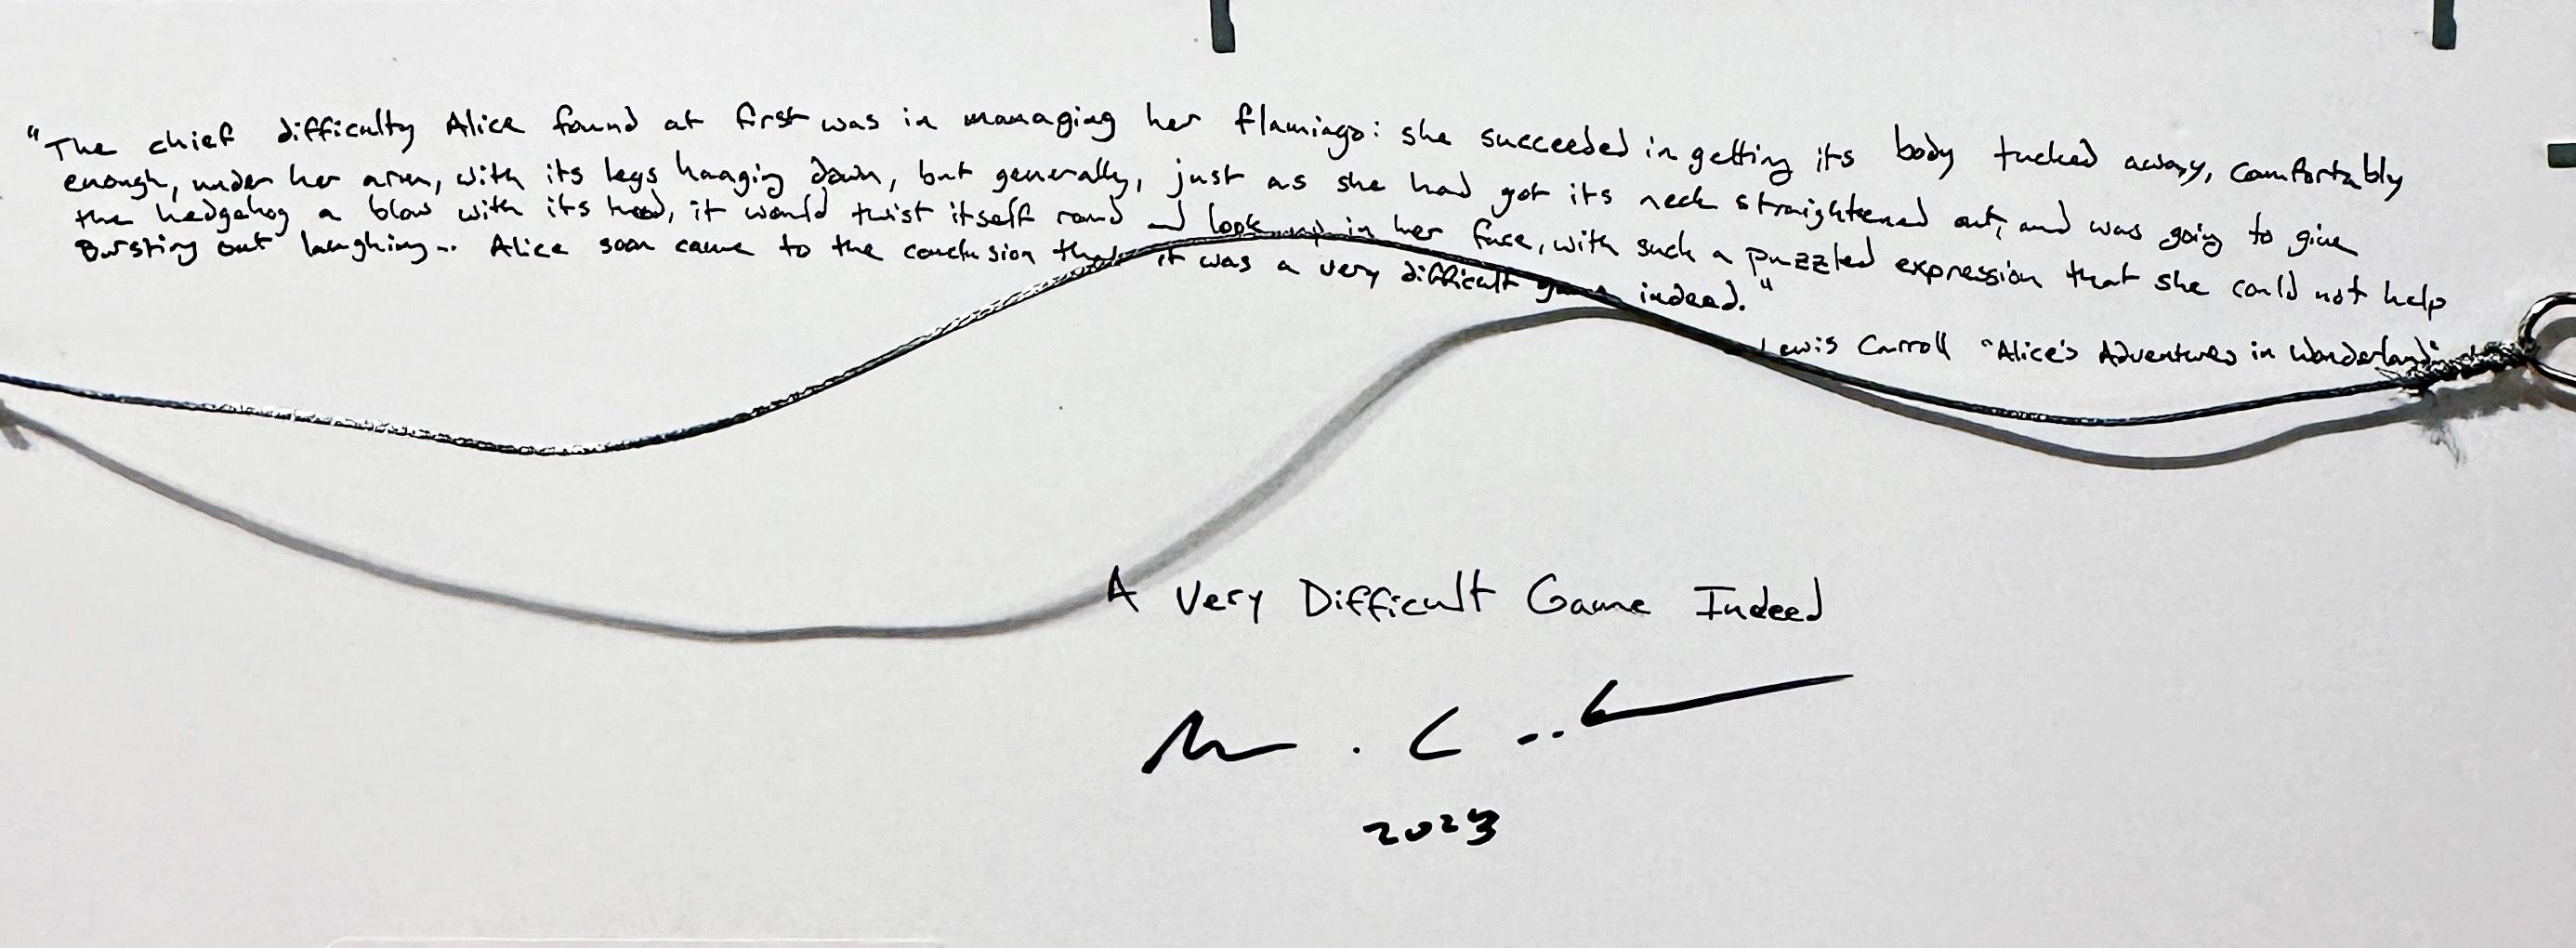 "The chief difficulty Alice found at first was in managing her flamingo: she succeeded in getting its body tucked away, comfortably
enough, under her arm, with its legs hanging down, but generally, just as she had got its neck straightened out, and was going to give
the hedgehog a blow with its head, it would twist itself round and look up in her face, with such a puzzled expression that she could not help
Bursting out laughing... Alice soon came to the conclusion that it was a very difficult game indeed."
Lewis Carroll "Alice's Adventures in Wonderland"
A Very Difficult Game Indeed
2023